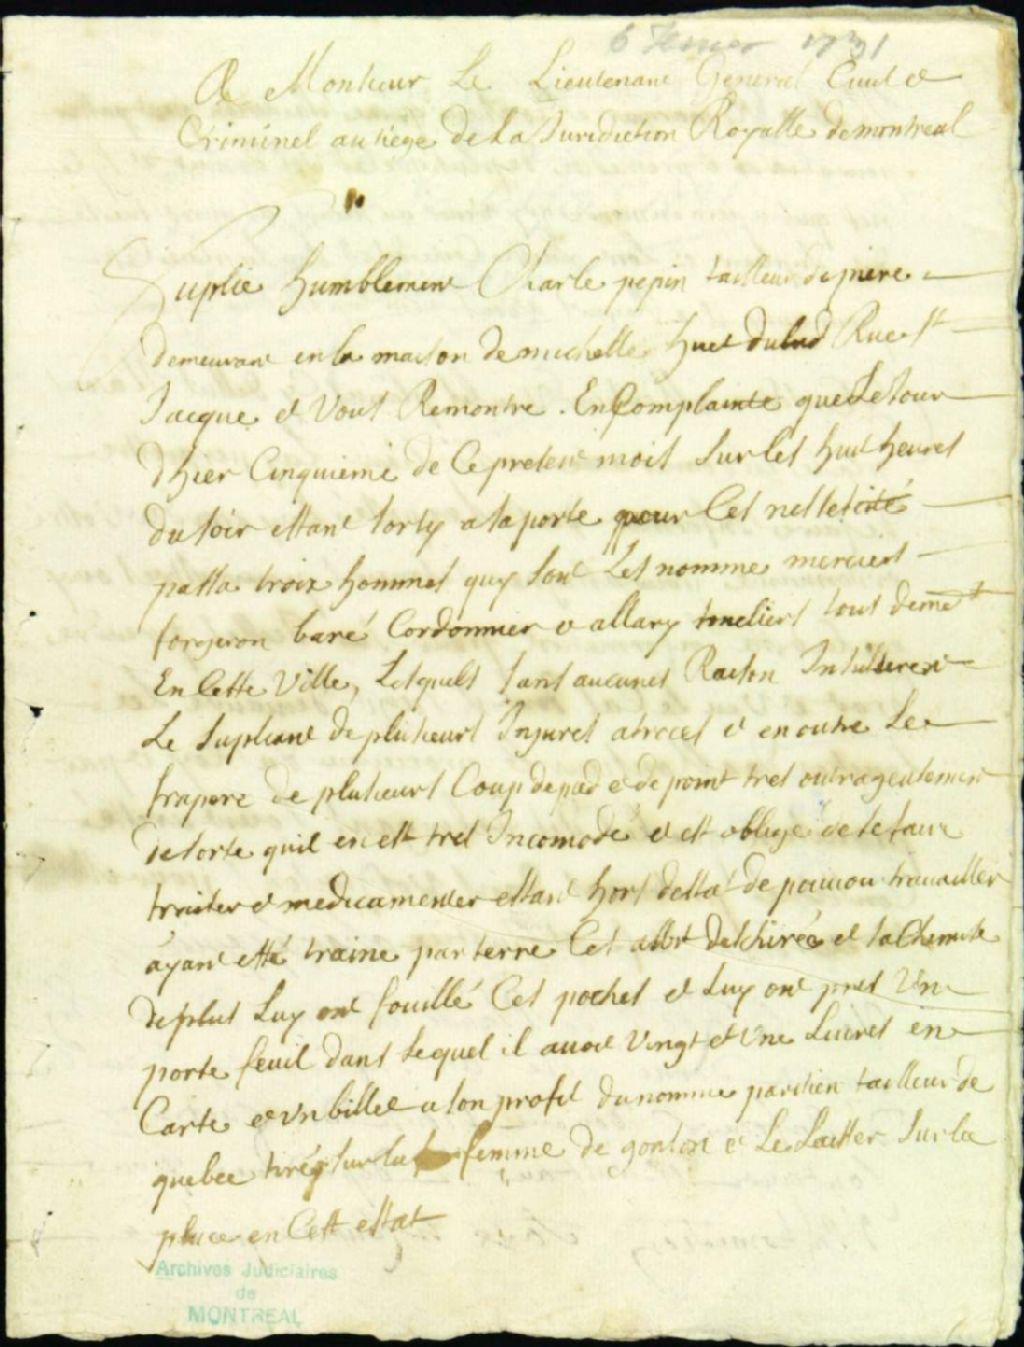 6 fevrier 1731
A Monsieur Le Lieutenant General Civil et
Criminel au siege de La Juridiction Royalle de montreal
Suplie humblement Charle pepin tailleur de piere
demeurant en la maison de michelle huet dulud Rue st
Jacque et Vous Remontre . En Complainte que Le Jour
dhier Cinquieme de Ce present mois sur les huit heures
du soir estant sorty a sa porte pour Ces nessesité
passa troix hommes quy sont Les nomme merciers
forgeron baré Cordonnier et allary toneliers tous demt
En Cette Ville, Lesquels sans aucunes Raison Insulterent
Le Supliant de plusieurs Injures atroces et en outre Le
frapere de plusieurs Coup de pied et de point tres outrageusement
de sorte quil en est tres Incomodé et est obligé de se faire
traiter et medicamenter estant hors destat de pouvoir travailler
ayant esté traine par terre Ces abit deschirée et sa Chemise
de plus Luy ont fouillé Ces poches et Luy ont pris Un
porte feuil dans lequel il avoit Vingt et Une Livres en
Carte et un billet a son profit du nomme parisien tailleur de
quebec tirés sur la femme de gonlon et Le Laisser sur la
place en Cest estat
Archives Judiciaires
de
MONTREAL